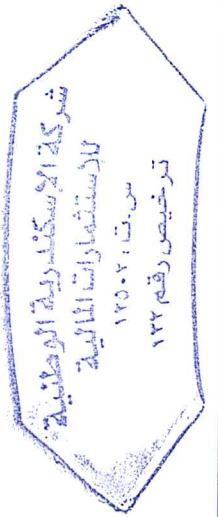 شركة الإسكندرية الوطنية
للاستثمارات المالية
س.ت : ١٢٥٠٢
ترخيص رقم ١٢٢